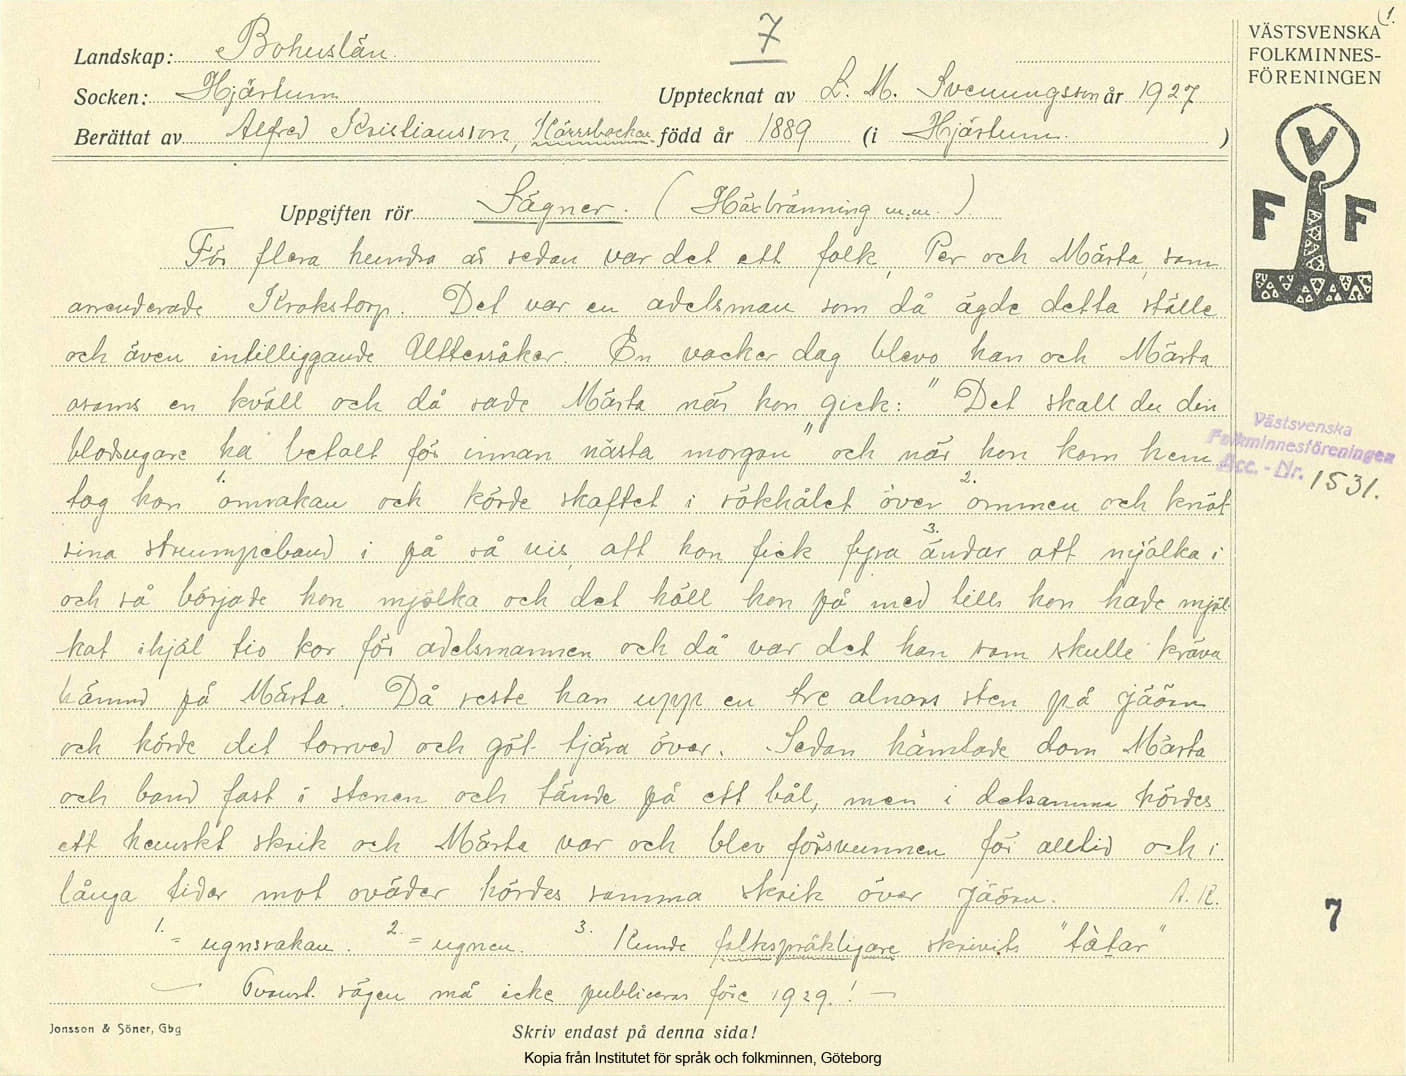 1.
7
VÄSTSVENSKA
FOLKMINNES-
FÖRENINGEN
V
F F
Landskap: Bohuslän
Socken: Hjärtum Upptecknat av L. M. Svenungsson år 1927
Berättat av Alfred Kristiansson, Kärrsbackar född år 1889 (i Hjärtum. )
Uppgiften rör Sägner. (Häxbränning m.m.)
För flera hundra år sedan var det ett folk, Per och Märta, som
arrenderade Krokstorp. Det var en adelsman som då ägde detta ställe
och även intilliggande Utteråker. En vacker dag blevo han och Märta
osams en kväll och då sade Märta när hon gick: "Det skall du din
blodsugare ha betalt för innan nästa morgon" och när hon kom hem
tog hon 1. omrakan och körde skaftet i rökhålet över 2. ommen och knöt
sina strumpeband i på så vis, att hon fick fyra 3. ändar att mjölka i
och så började hon mjölka och det höll hon på med tills hon hade mjöl-
kat ihjäl tio kor för adelsmannen och då var det han som skulle kräva
hämnd på Märta. Då reste han upp en tre alnars sten på jäörn
och körde dit torrved och göt tjära över. Sedan hämtade dom Märta
och band fast i stenen och tände på ett bål, men i detsamma hördes
ett hemskt skrik och Märta var och blev försvunnen för alltid och i
långa tider mot oväder hördes samma skrik över jäörn. A. K.
1. = ugnsrakan. 2. = ugnen. 3. Kunde folkspråkligare skrivits "tåtar"
Ovanst. sägen må icke publiceras före 1929.! —
Västsvenska
Folkminnesföreningen
Acc. - Nr. 1531.
7
Jonsson & Söner, Gbg
Skriv endast på denna sida!
Kopia från Institutet för språk och folkminnen, Göteborg